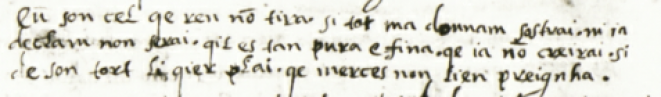 Eu son cel qe ren nõ tira. si tot ma donnam sostrai. ni ia
declam non serai. qil es tan pura e fina. qe ia nõ creirai. si
de son tort li qier plai. qe merces non lien preignha.